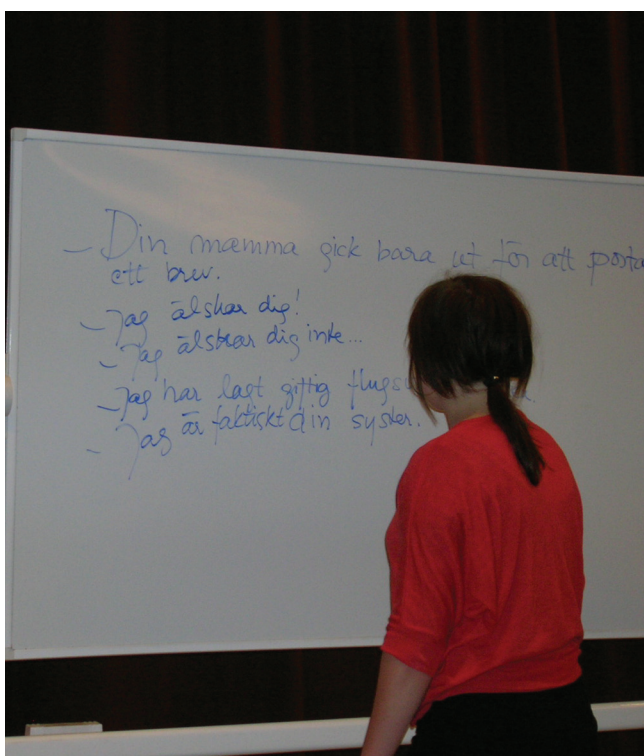 – Din mamma gick bara ut för att posta
ett brev.
– Jag älskar dig!
– Jag älskar dig inte...
– Jag har lagt giftig
– Jag är faktiskt din syster.